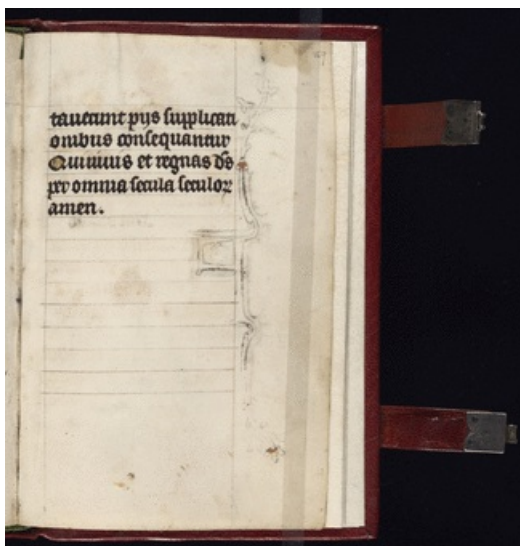 tauerunt pijs supplicati
onibus consequantur
Qui viuis et regnas ds
per omnia secula seculoꝝ
amen.